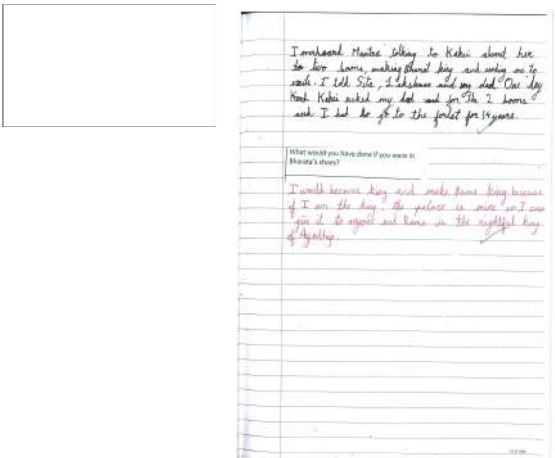 I overheard Mantra talking to Kakei about her
to two boons, making Bharat king and sending me to
exile. I told Sita, Lakshman and my dad. One day
Kakei asked my dad and for the 2 boons
and I had to go to the forest for 14 years.
What would you have done if you were in
Bharata's shoes?
I would become king and make Rama king because
if I am the king, the palace is mine so I can
give it to anyone and Rama is the rightful king
of